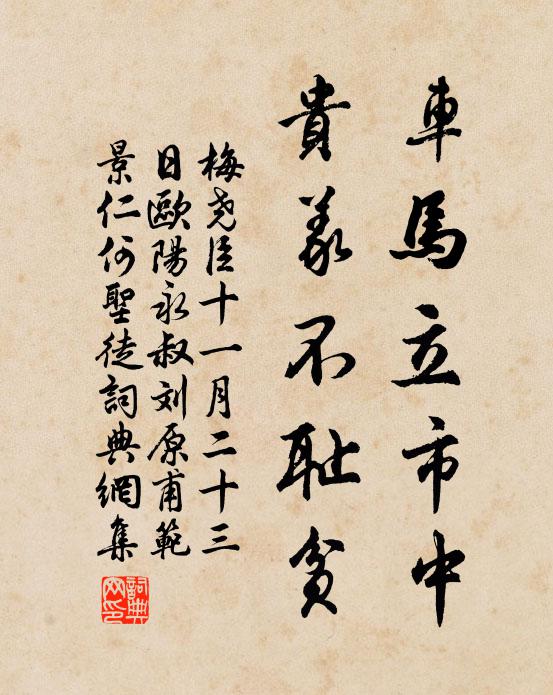 車馬立市中
貴義不耻貧
梅尭臣十一月二十三
日歐陽永叔刘原甫範
景仁何聖徒詞典網集
詞典网印